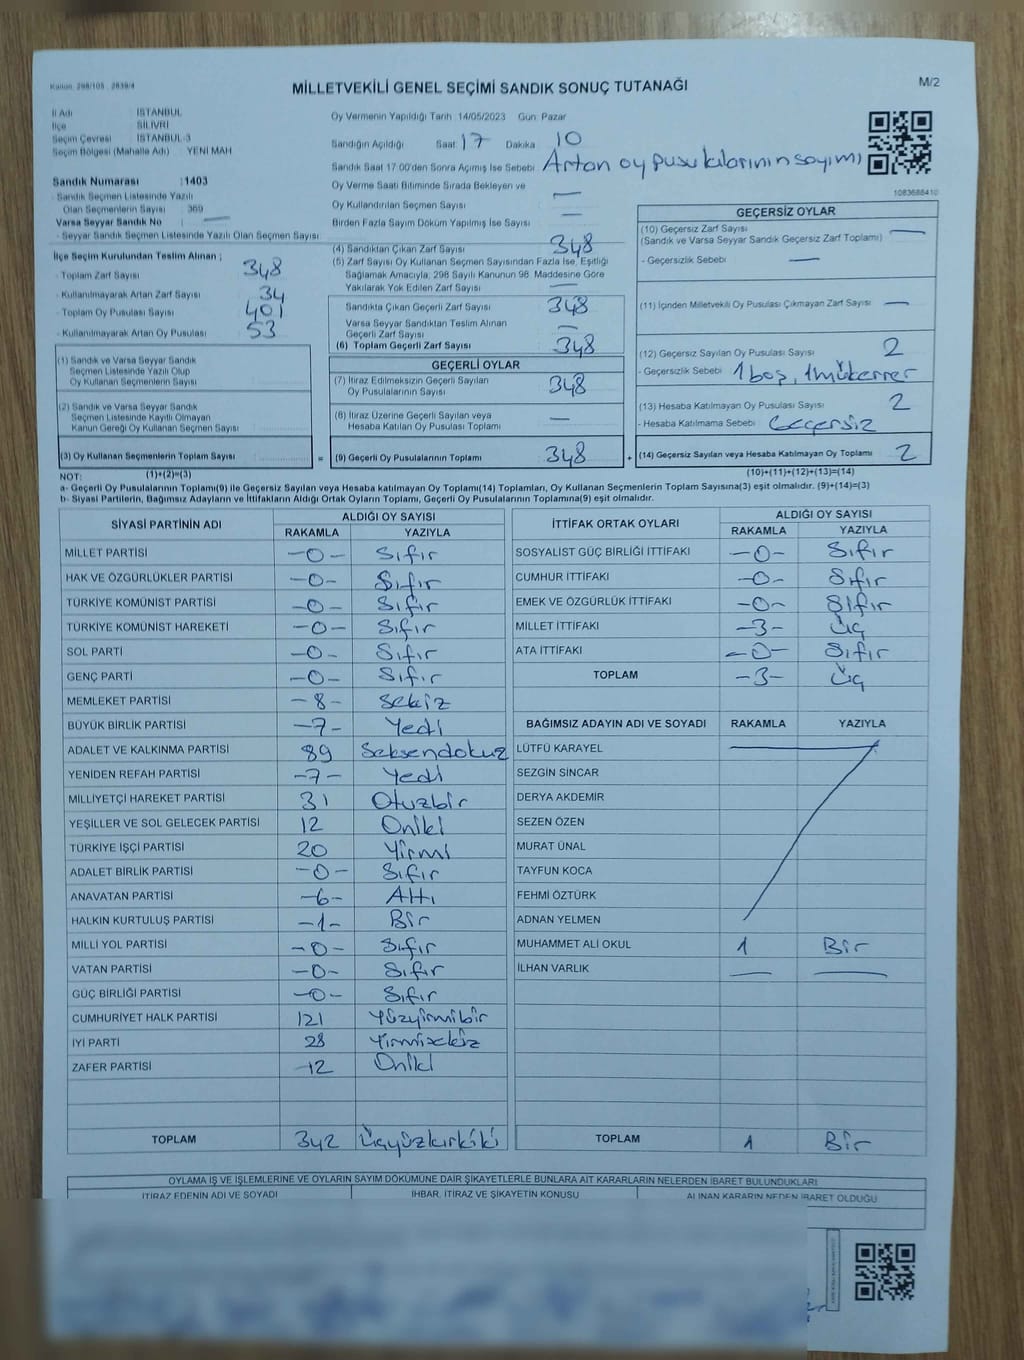 Kanun: 298/105 , 2839/4
MİLLETVEKİLİ GENEL SEÇİMİ SANDIK SONUÇ TUTANAĞI
M/2
İl Adı : İSTANBUL
İlçe : SİLİVRİ
Seçim Çevresi : İSTANBUL-3
Seçim Bölgesi (Mahalle Adı) : YENİ MAH
Sandık Numarası :1403
- Sandık Seçmen Listesinde Yazılı
Olan Seçmenlerin Sayısı : 369
Varsa Seyyar Sandık No : —
- Seyyar Sandık Seçmen Listesinde Yazılı Olan Seçmen Sayısı
Oy Vermenin Yapıldığı Tarih :14/05/2023 Gün: Pazar
Sandığın Açıldığı Saat: 17 Dakika 10
Sandık Saat 17:00'den Sonra Açımış İse Sebebi Artan oy pusulalarının sayımı
Oy Verme Saati Bitiminde Sırada Bekleyen ve
Oy Kullandırılan Seçmen Sayısı —
Birden Fazla Sayım Döküm Yapılmış İse Sayısı —
1083686410
İlçe Seçim Kurulundan Teslim Alınan ;
- Toplam Zarf Sayısı 348
- Kullanılmayarak Artan Zarf Sayısı 34
- Toplam Oy Pusulası Sayısı 401
- Kullanılmayarak Artan Oy Pusulası 53
(1) Sandık ve Varsa Seyyar Sandık
Seçmen Listesinde Yazılı Olup
Oy Kullanan Seçmenlerin Sayısı
(2) Sandık ve Varsa Seyyar Sandık
Seçmen Listesinde Kayıtlı Olmayan
Kanun Gereği Oy Kullanan Seçmen Sayısı
(3) Oy Kullanan Seçmenlerin Toplam Sayısı
=
(4) Sandıktan Çıkan Zarf Sayısı 348
(5) Zarf Sayısı Oy Kullanan Seçmen Sayısından Fazla İse, Eşitliği
Sağlamak Amacıyla, 298 Sayılı Kanunun 98. Maddesine Göre
Yakılarak Yok Edilen Zarf Sayısı —
Sandıkta Çıkan Geçerli Zarf Sayısı 348
Varsa Seyyar Sandıktan Teslim Alınan
Geçerli Zarf Sayısı —
(6) Toplam Geçerli Zarf Sayısı 348
GEÇERLİ OYLAR
(7) İtiraz Edilmeksizin Geçerli Sayılan
Oy Pusulalarının Sayısı 348
(8) İtiraz Üzerine Geçerli Sayılan veya
Hesaba Katılan Oy Pusulası Toplamı —
(9) Geçerli Oy Pusulalarının Toplamı 348
+
GEÇERSİZ OYLAR
(10) Geçersiz Zarf Sayısı
(Sandık ve Varsa Seyyar Sandık Geçersiz Zarf Toplamı) —
- Geçersizlik Sebebi —
(11) İçinden Milletvekili Oy Pusulası Çıkmayan Zarf Sayısı —
(12) Geçersiz Sayılan Oy Pusulası Sayısı 2
- Geçersizlik Sebebi 1 boş, 1 mükerrer
(13) Hesaba Katılmayan Oy Pusulası Sayısı 2
- Hesaba Katılmama Sebebi Geçersiz
(14) Geçersiz Sayılan veya Hesaba Katılmayan Oy Toplamı 2
NOT: (1)+(2)=(3) (10)+(11)+(12)+(13)=(14)
a- Geçerli Oy Pusulalarının Toplamı(9) ile Geçersiz Sayılan veya Hesaba Katılmayan Oy Toplamı(14) Toplamları, Oy Kullanan Seçmenlerin Toplam Sayısına(3) eşit olmalıdır. (9)+(14)=(3)
b- Siyasi Partilerin, Bağımsız Adayların ve İttifakların Aldığı Ortak Oyların Toplamı, Geçerli Oy Pusulalarının Toplamına(9) eşit olmalıdır.
SİYASİ PARTİNİN ADI ALDIĞI OY SAYISI
RAKAMLA YAZIYLA
MİLLET PARTİSİ -0- Sıfır
HAK VE ÖZGÜRLÜKLER PARTİSİ -0- Sıfır
TÜRKİYE KOMÜNİST PARTİSİ -0- Sıfır
TÜRKİYE KOMÜNİST HAREKETİ -0- Sıfır
SOL PARTİ -0- Sıfır
GENÇ PARTİ -0- Sıfır
MEMLEKET PARTİSİ -8- Sekiz
BÜYÜK BİRLİK PARTİSİ -7- Yedi
ADALET VE KALKINMA PARTİSİ 89 Seksendokuz
YENİDEN REFAH PARTİSİ -7- Yedi
MİLLİYETÇİ HAREKET PARTİSİ 31 Otuzbir
YEŞİLLER VE SOL GELECEK PARTİSİ 12 Oniki
TÜRKİYE İŞÇİ PARTİSİ 20 Yirmi
ADALET BİRLİK PARTİSİ -0- Sıfır
ANAVATAN PARTİSİ -6- Altı
HALKIN KURTULUŞ PARTİSİ -1- Bir
MİLLİ YOL PARTİSİ -0- Sıfır
VATAN PARTİSİ -0- Sıfır
GÜÇ BİRLİĞİ PARTİSİ -0- Sıfır
CUMHURİYET HALK PARTİSİ 121 Yüzyirmibir
İYİ PARTİ 28 Yirmisekiz
ZAFER PARTİSİ -12 Oniki
TOPLAM 342 Üçyüzkırkiki
İTTİFAK ORTAK OYLARI ALDIĞI OY SAYISI
RAKAMLA YAZIYLA
SOSYALİST GÜÇ BİRLİĞİ İTTİFAKI -0- Sıfır
CUMHUR İTTİFAKI -0- Sıfır
EMEK VE ÖZGÜRLÜK İTTİFAKI -0- Sıfır
MİLLET İTTİFAKI -3- Üç
ATA İTTİFAKI -0- Sıfır
TOPLAM -3- Üç
BAĞIMSIZ ADAYIN ADI VE SOYADI RAKAMLA YAZIYLA
LÜTFÜ KARAYEL
SEZGİN SİNCAR
DERYA AKDEMİR
SEZEN ÖZEN
MURAT ÜNAL
TAYFUN KOCA
FEHMİ ÖZTÜRK
ADNAN YELMEN
MUHAMMET ALİ OKUL 1 Bir
İLHAN VARLIK — —
TOPLAM 1 Bir
OYLAMA İŞ VE İŞLEMLERİNE VE OYLARIN SAYIM DÖKÜMÜNE DAİR ŞİKAYETLERLE BUNLARA AİT KARARLARIN NELERDEN İBARET BULUNDUKLARI
İTİRAZ EDENİN ADI VE SOYADI İHBAR, İTİRAZ VE ŞİKAYETİN KONUSU ALINAN KARARIN NEDEN İBARET OLDUĞU